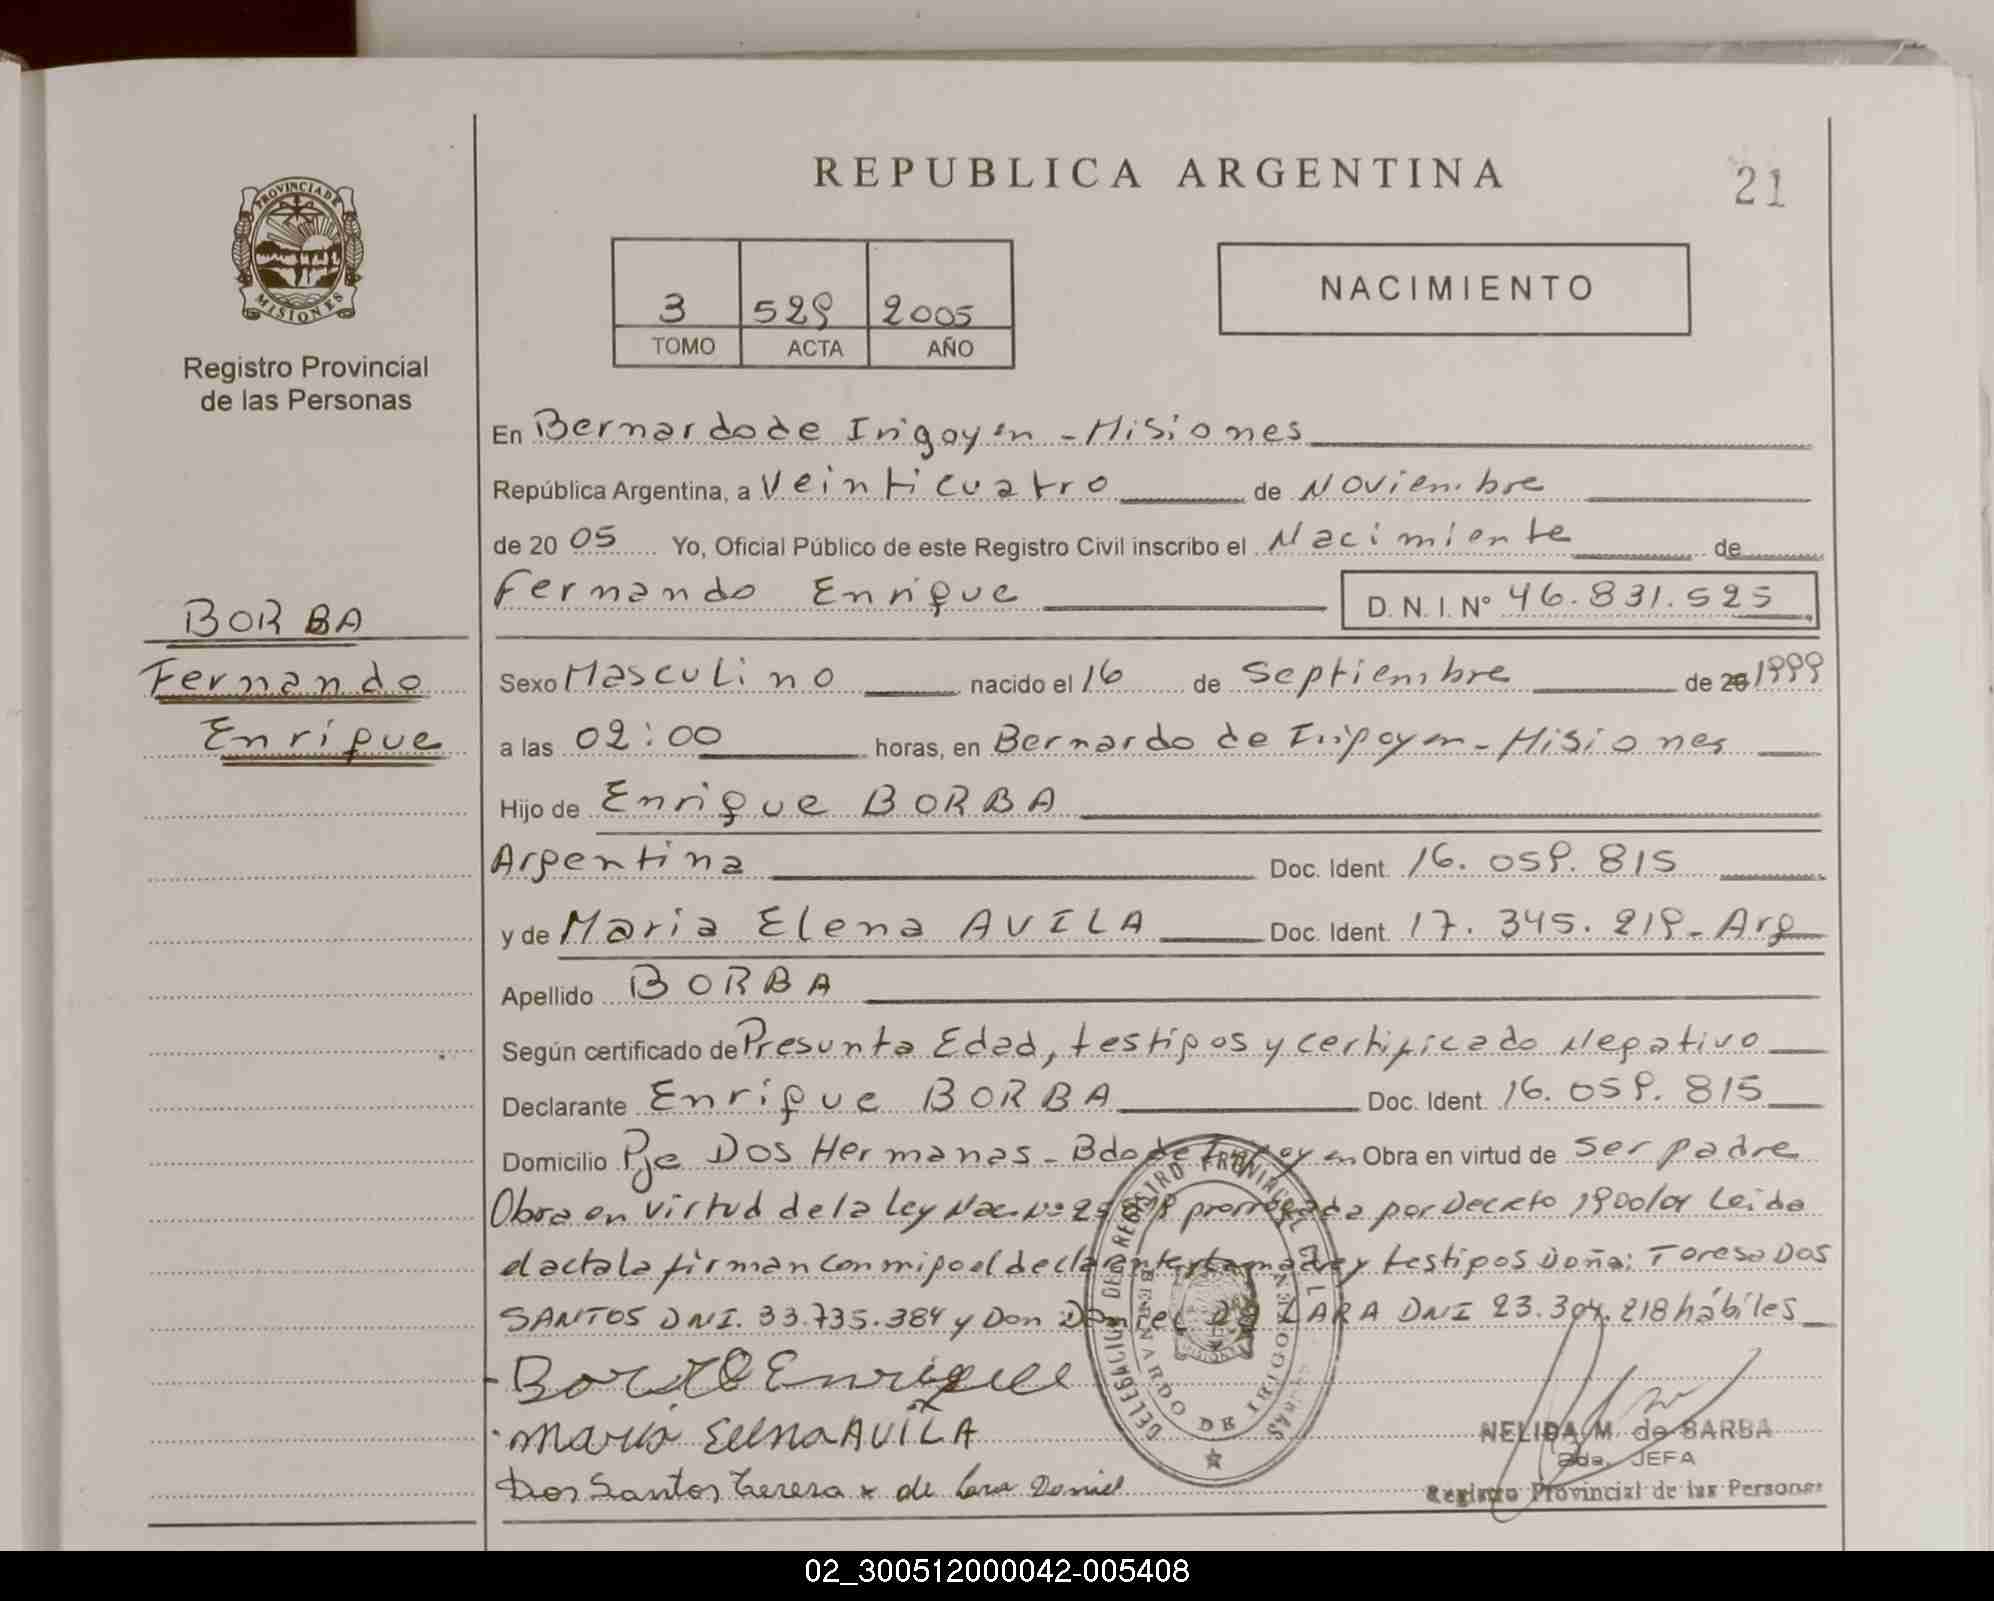 REPUBLICA ARGENTINA
21
PROVINCIA DE
MISIONES
Registro Provincial
de las Personas
3 529 2005
TOMO ACTA AÑO
NACIMIENTO
En Bernardo de Irigoyen - Misiones
República Argentina, a Veinticuatro de Noviembre
de 20 05 Yo, Oficial Público de este Registro Civil inscribo el Nacimiento de
Fernando Enrique D. N. I. Nº 46.831.525
BORBA
Fernando
Enrique
Sexo Masculino nacido el 16 de Septiembre de 1999
a las 02:00 horas, en Bernardo de Irigoyen - Misiones
Hijo de Enrique BORBA
Argentina Doc. Ident. 16.059.815
y de Maria Elena AVILA Doc. Ident. 17.345.219 - Arg
Apellido BORBA
Según certificado de Presunta Edad, testigos y certificado Negativo
Declarante Enrique BORBA Doc. Ident. 16.059.815
Domicilio Pje Dos Hermanas - Bdo de Irigoyen Obra en virtud de ser padre
Obra en virtud de la Ley Nac. Nº prorrogada por Decreto Leida
el acta la firman conmigo el declarante, la madre y testigos Doña: Teresa DOS
SANTOS DNI. 33.735.384 y Don Daniel DE LARA DNI 23.304.218 hábiles
Borba Enrique
Maria Elena AVILA
Dos Santos Teresa x de Lara Daniel
DELEGACION DEL REGISTRO PROVINCIAL DE LAS PERSONAS
BERNARDO DE IRIGOYEN
NELIDA M. de BARBA
2da. JEFA
Registro Provincial de las Personas
02_300512000042-005408